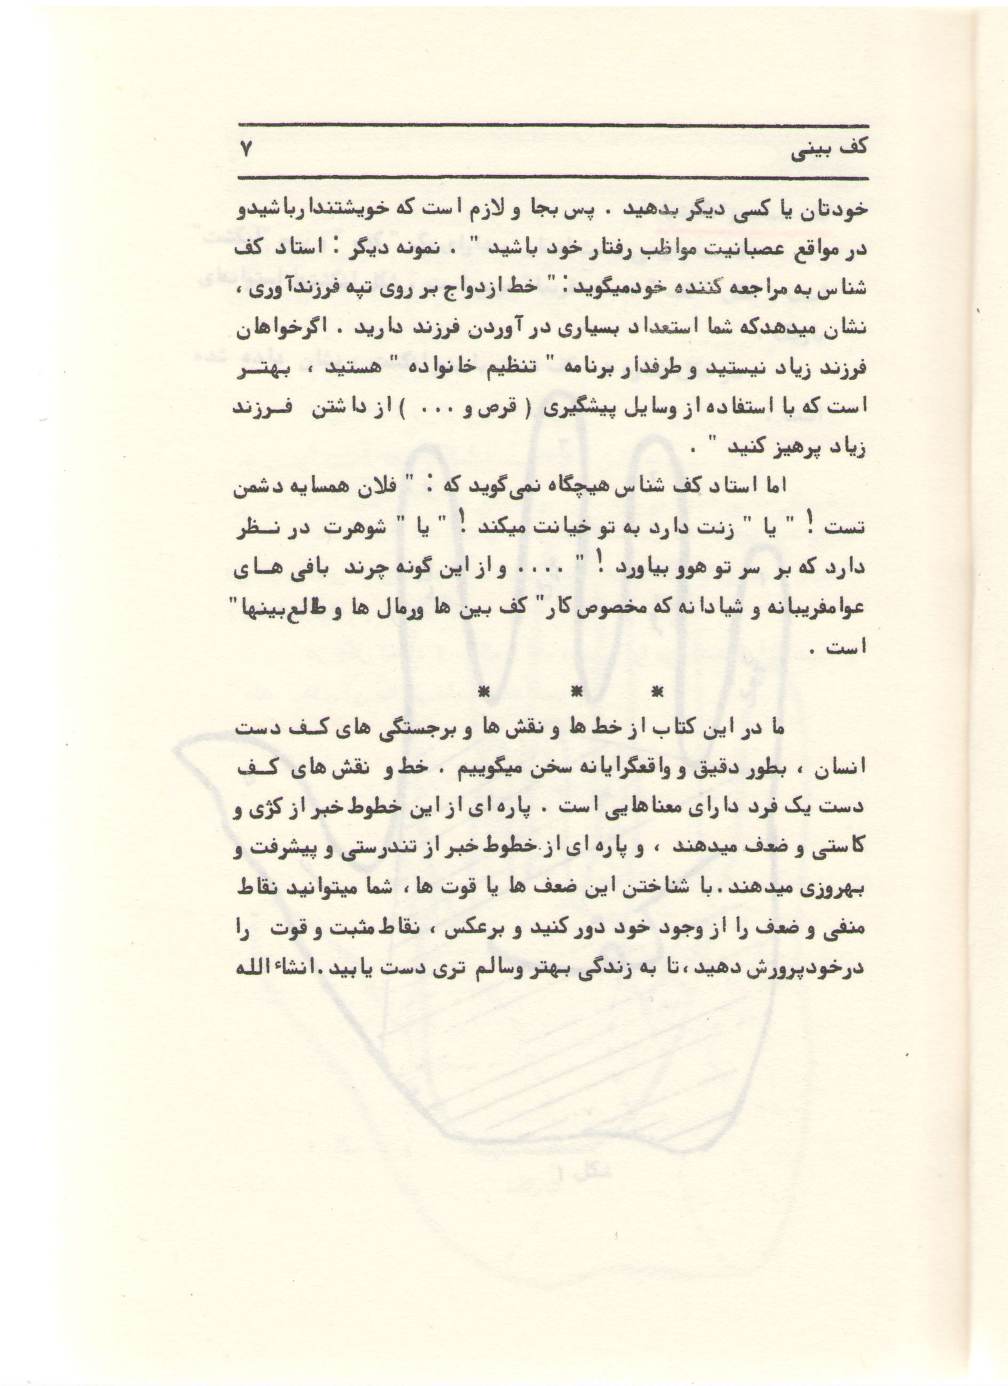 کف بینی ۷
خودتان یا کسی دیگر بدهید . پس بجا و لازم است که خویشتندارباشیدو
در مواقع عصبانیت مواظب رفتار خود باشید " . نمونه دیگر : استاد کف
شناس به مراجعه کننده خودمیگوید : " خط ازدواج بر روی تپه فرزندآوری ،
نشان میدهدکه شما استعداد بسیاری در آوردن فرزند دارید . اگرخواهان
فرزند زیاد نیستید و طرفدار برنامه " تنظیم خانواده " هستید ، بهتر
است که با استفاده از وسایل پیشگیری ( قرص و ... ) از داشتن فرزند
زیاد پرهیز کنید " .
اما استاد کف شناس هیچگاه نمی‌گوید که : " فلان همسایه دشمن
تست ! " یا " زنت دارد به تو خیانت میکند ! " یا " شوهرت در نظر
دارد که بر سر تو هوو بیاورد ! " .... و از این گونه چرند بافی های
عوامفریبانه و شیادانه که مخصوص کار " کف بین ها ورمال ها و طالع‌بینها "
است .
* * *
ما در این کتاب از خط ها و نقش ها و برجستگی های کف دست
انسان ، بطور دقیق و واقعگرایانه سخن میگوییم . خط و نقش های کف
دست یک فرد دارای معناهایی است . پاره ای از این خطوط خبر از کژی و
کاستی و ضعف میدهند ، و پاره ای از خطوط خبر از تندرستی و پیشرفت و
بهروزی میدهند . با شناختن این ضعف ها یا قوت ها ، شما میتوانید نقاط
منفی و ضعف را از وجود خود دور کنید و برعکس ، نقاط مثبت و قوت را
درخودپرورش دهید ، تا به زندگی بهتر وسالم تری دست یابید . انشاء الله